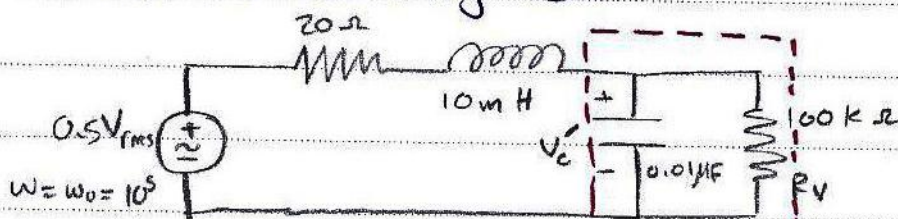 20 Ω
10 m H
0.5V rms
ω = ω₀ = 10⁵
+
-
Vc'
0.01μF
100 K Ω
RV